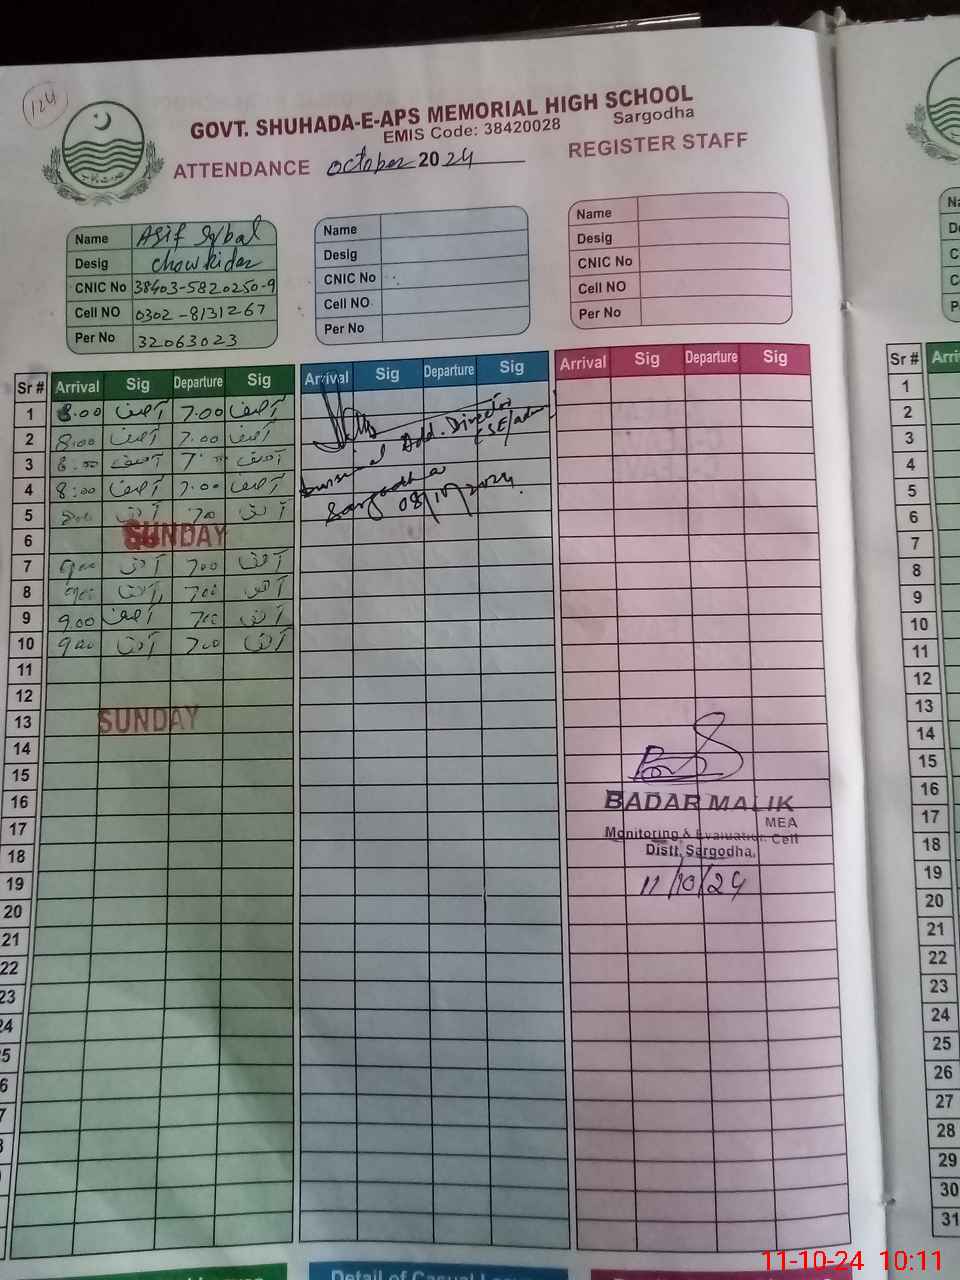 124
GOVT. SHUHADA-E-APS MEMORIAL HIGH SCHOOL
EMIS Code: 38420028 Sargodha
ATTENDANCE October 2024 REGISTER STAFF
Name Asif Iqbal
Desig Chowkidar
CNIC No 38403-5820250-9
Cell NO 0302-8131267
Per No 32063023
Name
Desig
CNIC No
Cell NO
Per No
Name
Desig
CNIC No
Cell NO
Per No
Sr # Arrival Sig Departure Sig Arrival Sig Departure Sig Arrival Sig Departure Sig
1 8:00 آصف 7:00 آصف
2 8:00 آصف 7:00 آصف
3 8:00 آصف 7:00 آصف
4 8:00 آصف 7:00 آصف
5 800 آصف 700 آصف
6 SUNDAY
7 900 آصف 700 آصف
8 900 آصف 700 آصف
9 9.00 آصف 700 آصف
10 900 آصف 700 آصف
11
12
13 SUNDAY
14
15
16
17
18
19
20
21
22
23
24
Add. Director
(SE/admn)
Sargodha
08/10/2024.
BADAR MALIK
MEA
Monitoring & Evaluation Cell
Distt, Sargodha.
11/10/24
Sr #
1
2
3
4
5
6
7
8
9
10
11
12
13
14
15
16
17
18
19
20
21
22
23
24
25
26
27
28
29
30
31
11-10-24 10:11